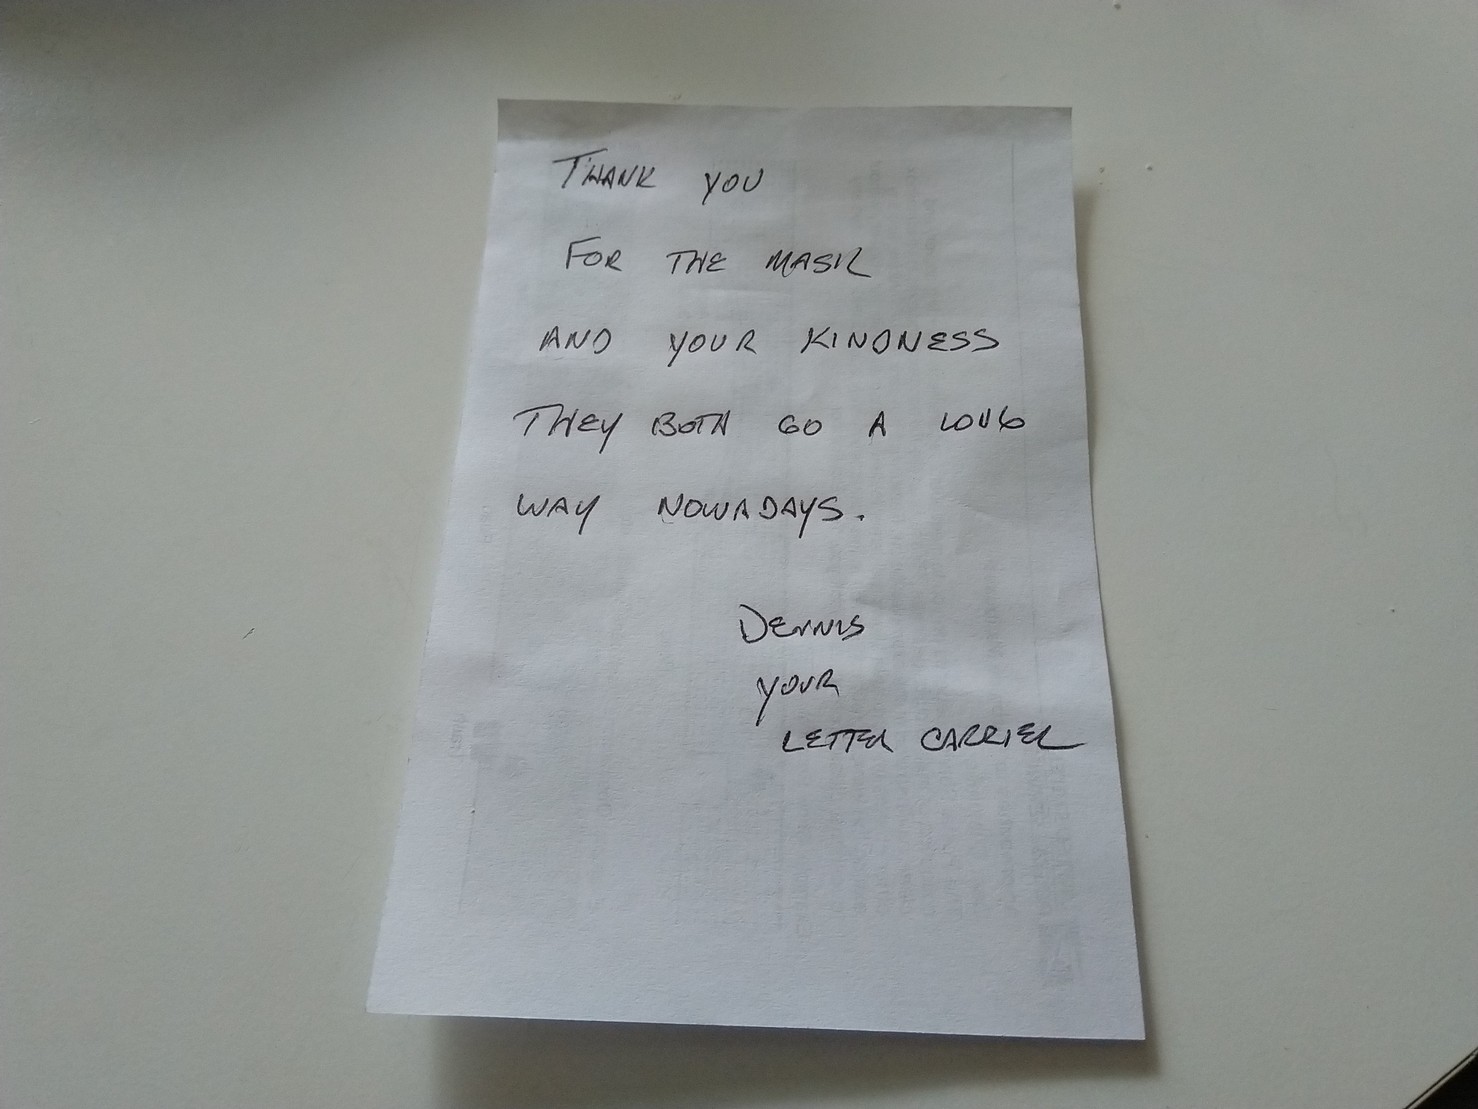 THANK YOU
FOR THE MASK
AND YOUR KINDNESS
THEY BOTH GO A LONG
WAY NOWADAYS.
DENNIS
YOUR
LETTER CARRIER